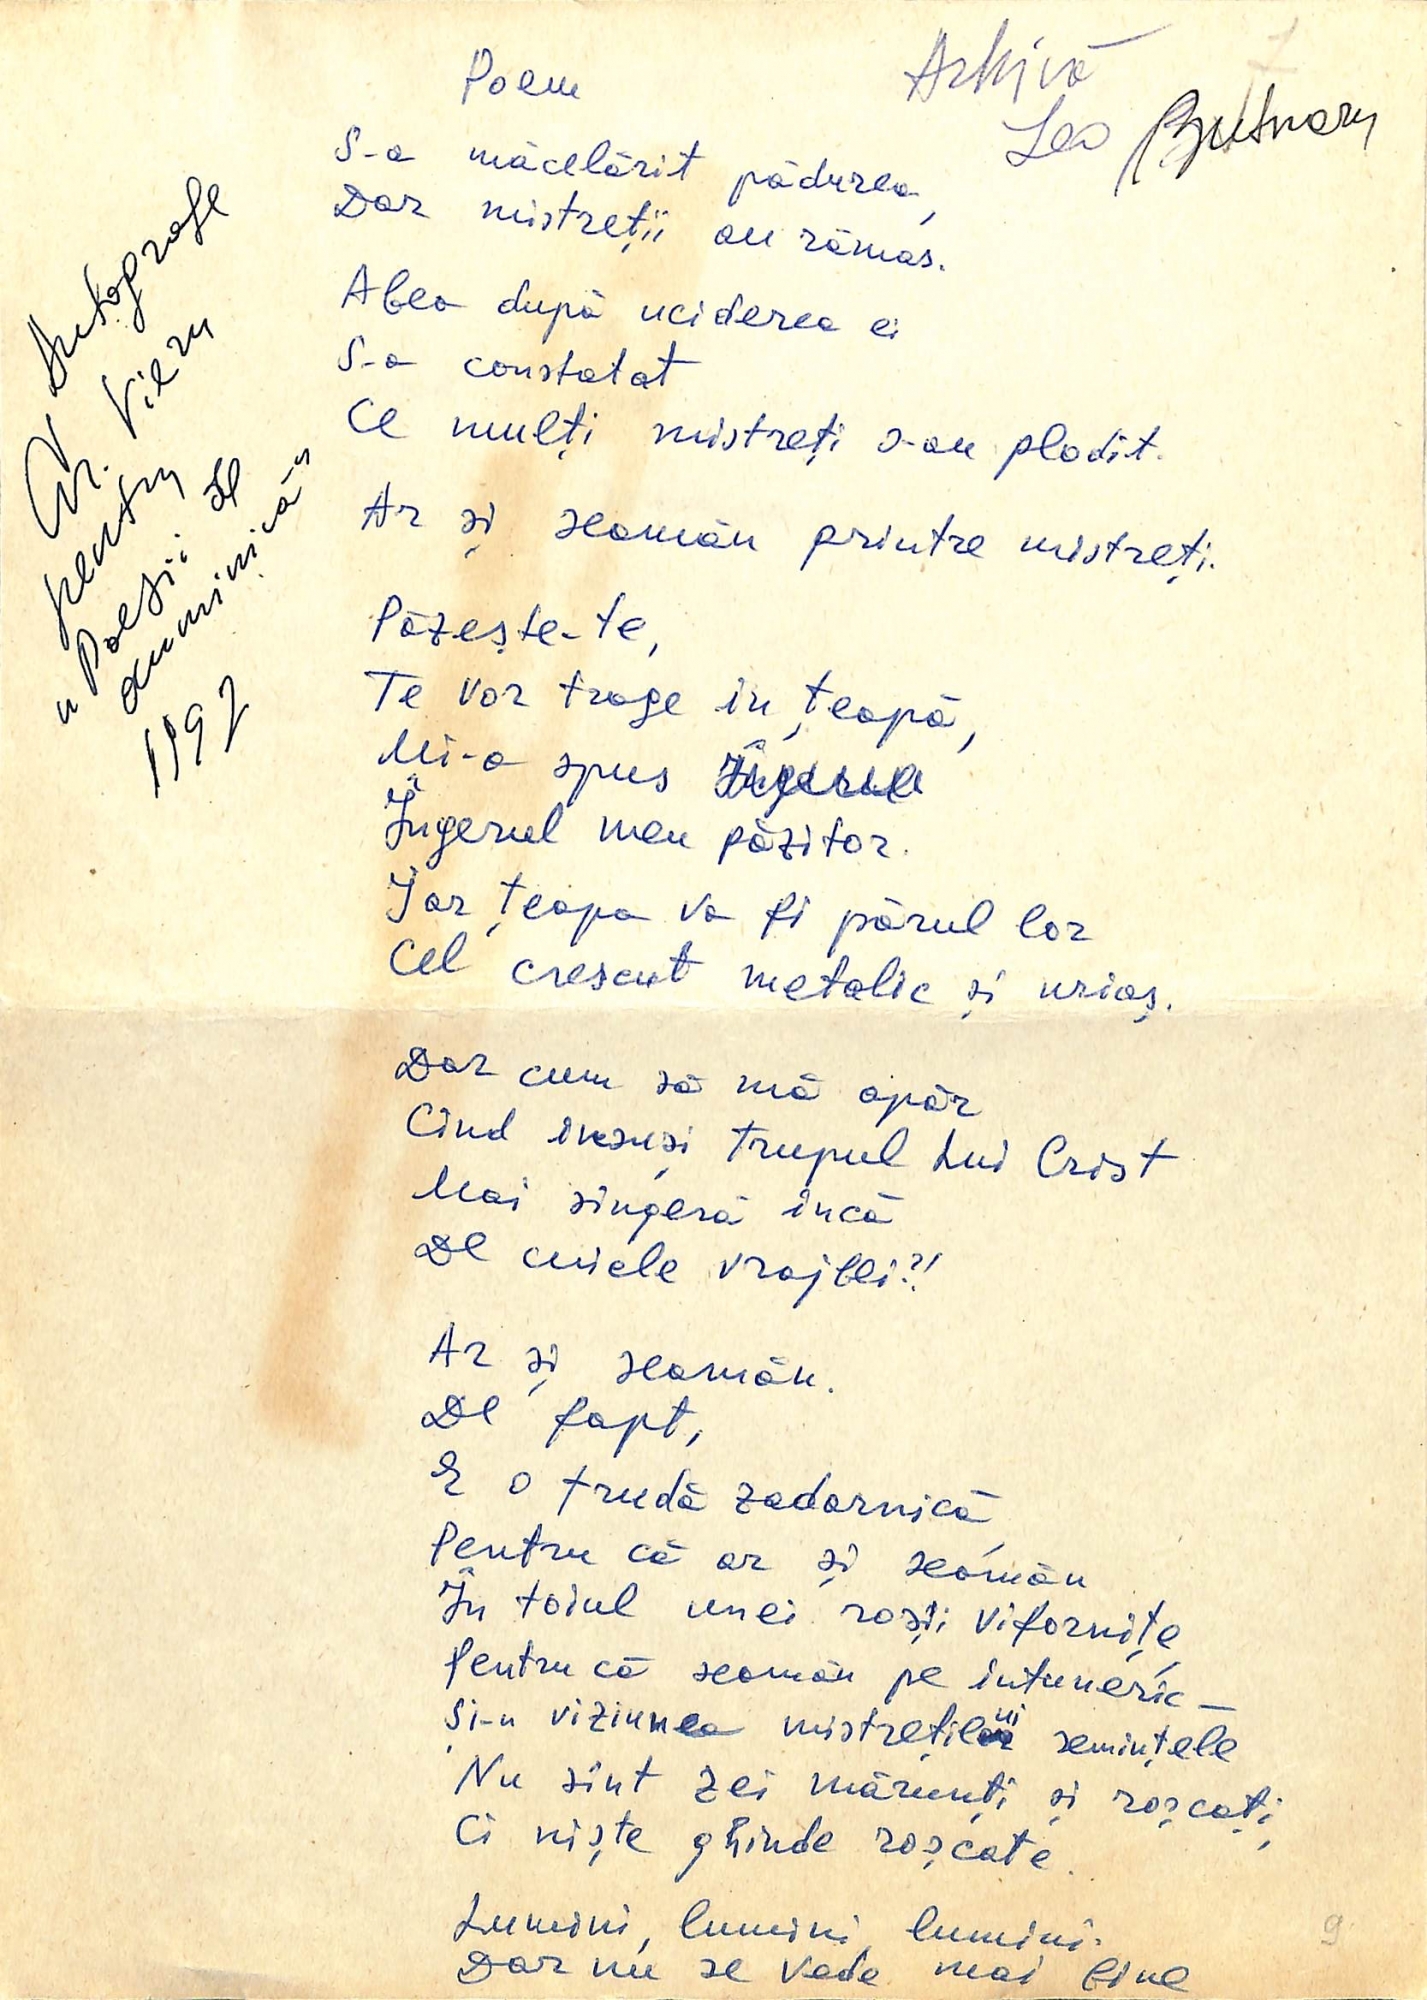 Poem
Arhivă
Leo Butnaru
S-a măcelărit pădurea,
Dar mistreții au rămas.
Abea după uciderea ei
S-a constatat
Ce mulți mistreți s-au plodit.
Ar și seamăn printre mistreți.
Păzește-te,
Te vor trage in țeapă,
Mi-a spus Îngerul
Îngerul meu păzitor.
Iar țeapa va fi părul lor
Cel crescut metalic și uriaș.
Dar cum să mă apăr
Cind insuși trupul Lui Crist
Mai singeră incă
De cuiele vrajbei?!
Ar și seamăn.
De fapt,
E o trudă zadarnică,
Pentru că ar și seamăn
În toiul unei roșii vifornițe,
Pentru că seamăn pe intuneric —
Și-n viziunea mistrețilui semințele
Nu sint zei mărunți și roșcați,
Ci niște ghinde roșcate.
Lumini, lumini, lumini.
Dar nu se vede mai bine
9
Autografe
Gr. Vieru
pentru
„Poezii de
duminică”
1997